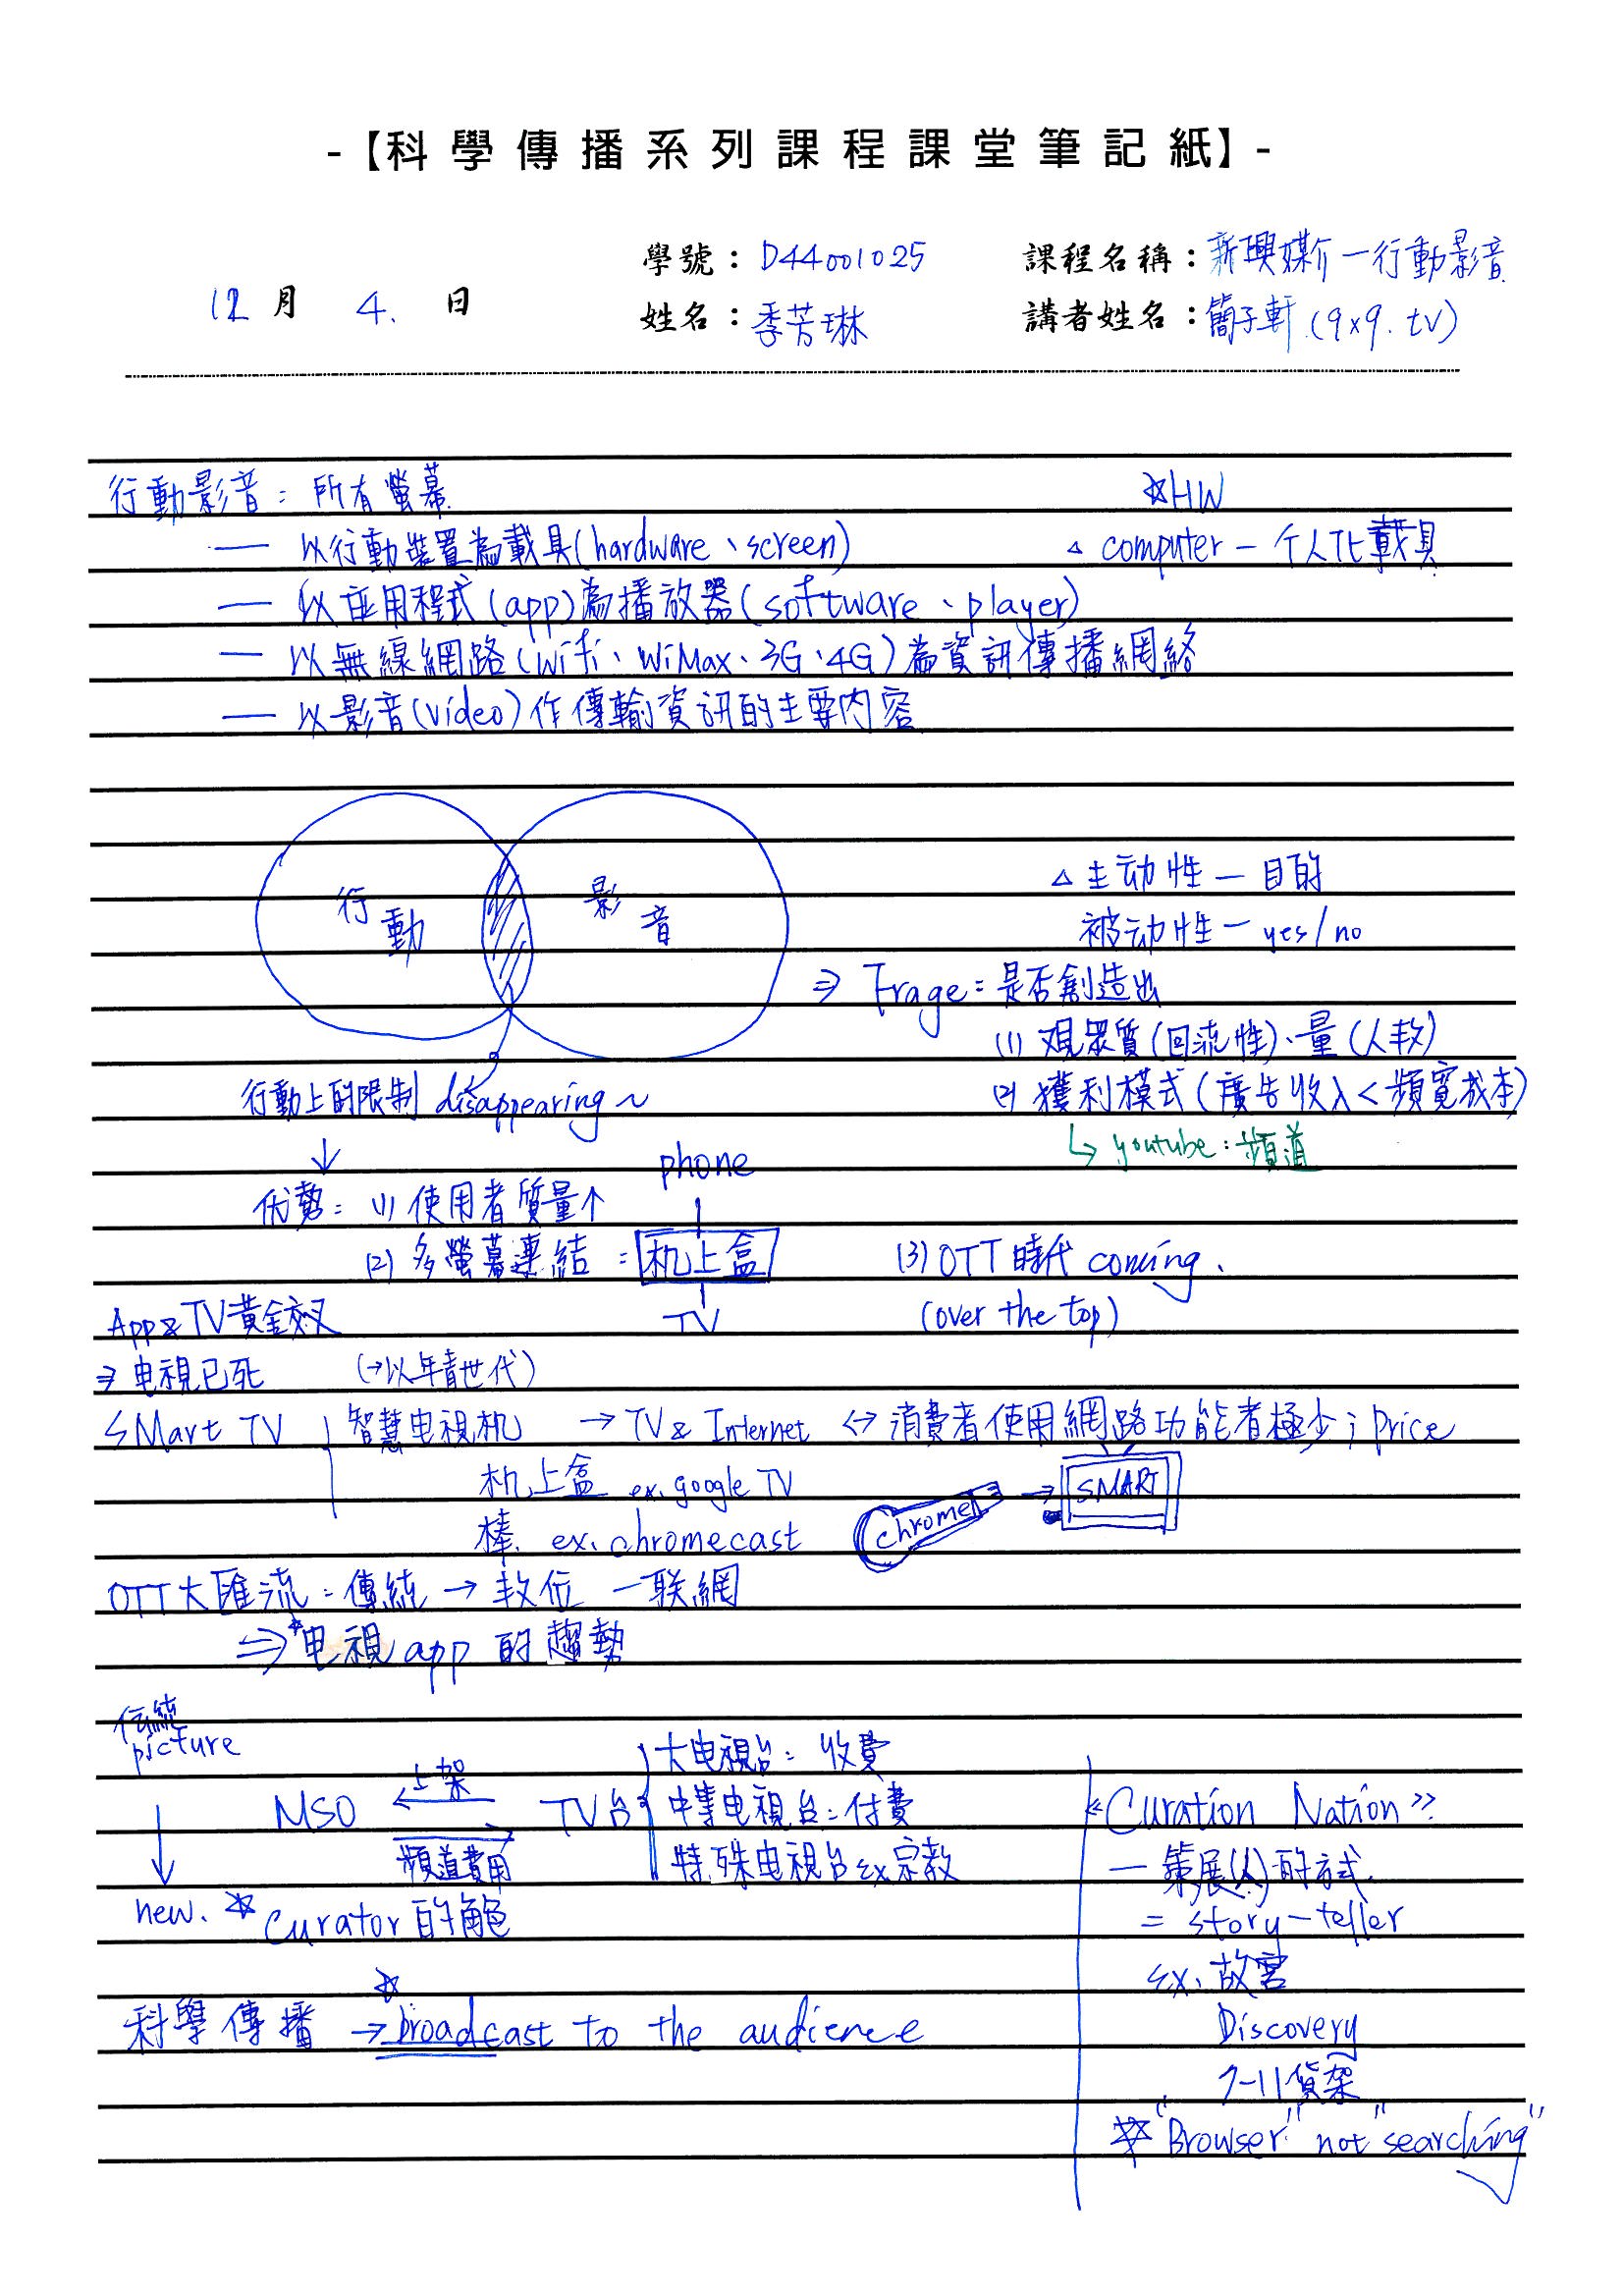 -【科學傳播系列課程課堂筆記紙】-
學號：D44001025 課程名稱：新興媒介－行動影音
12月 4. 日 姓名：季芳琳 講者姓名：簡子軒 (9x9.tv)
行動影音：所有螢幕 ☆HW
— 以行動裝置為載具(hardware、screen) △ computer － 个人化載具
— 以应用程式(app)為播放器(software、player)
— 以無線網路(wifi、WiMax、3G、4G)為資訊傳播網絡
— 以影音(video)作傳輸資訊的主要內容
行動 影音
△ 主动性 － 目的
被动性 － yes/no
⇒ Frage：是否創造出
(1) 观眾質(回流性)、量(人数)
(2) 獲利模式(廣告收入<頻寬成本)
↳ youtube：頻道
行動上的限制 disappearing~
↓
优势：(1) 使用者質量个
phone
(2) 多螢幕連結：机上盒 (3) OTT時代 coming.
TV (over the top)
App & TV黃金交叉
⇒ 电視已死 (→以年青世代)
SMart TV 智慧电視机 → TV & Internet ↔ 消費者使用網路功能者極少；price
机上盒 ex. google TV
棒. ex. chromecast chrome → SMART
OTT大匯流：傳統 → 数位 一联網
⇒ *电視app 的趨勢
伝統
picture
大电視台：收費
MSO ← 上架 TV台 中等电視台：付費
→ 頻道費用 特殊电視台 ex宗教
↓
new. ☆ Curator的角色
《Curation Nation》
— 策展(人)的方式.
= story-teller
ex. 故宮
Discovery
7-11貨架
☆"Browser" not "searching"
科學傳播 → ☆broadcast to the audience